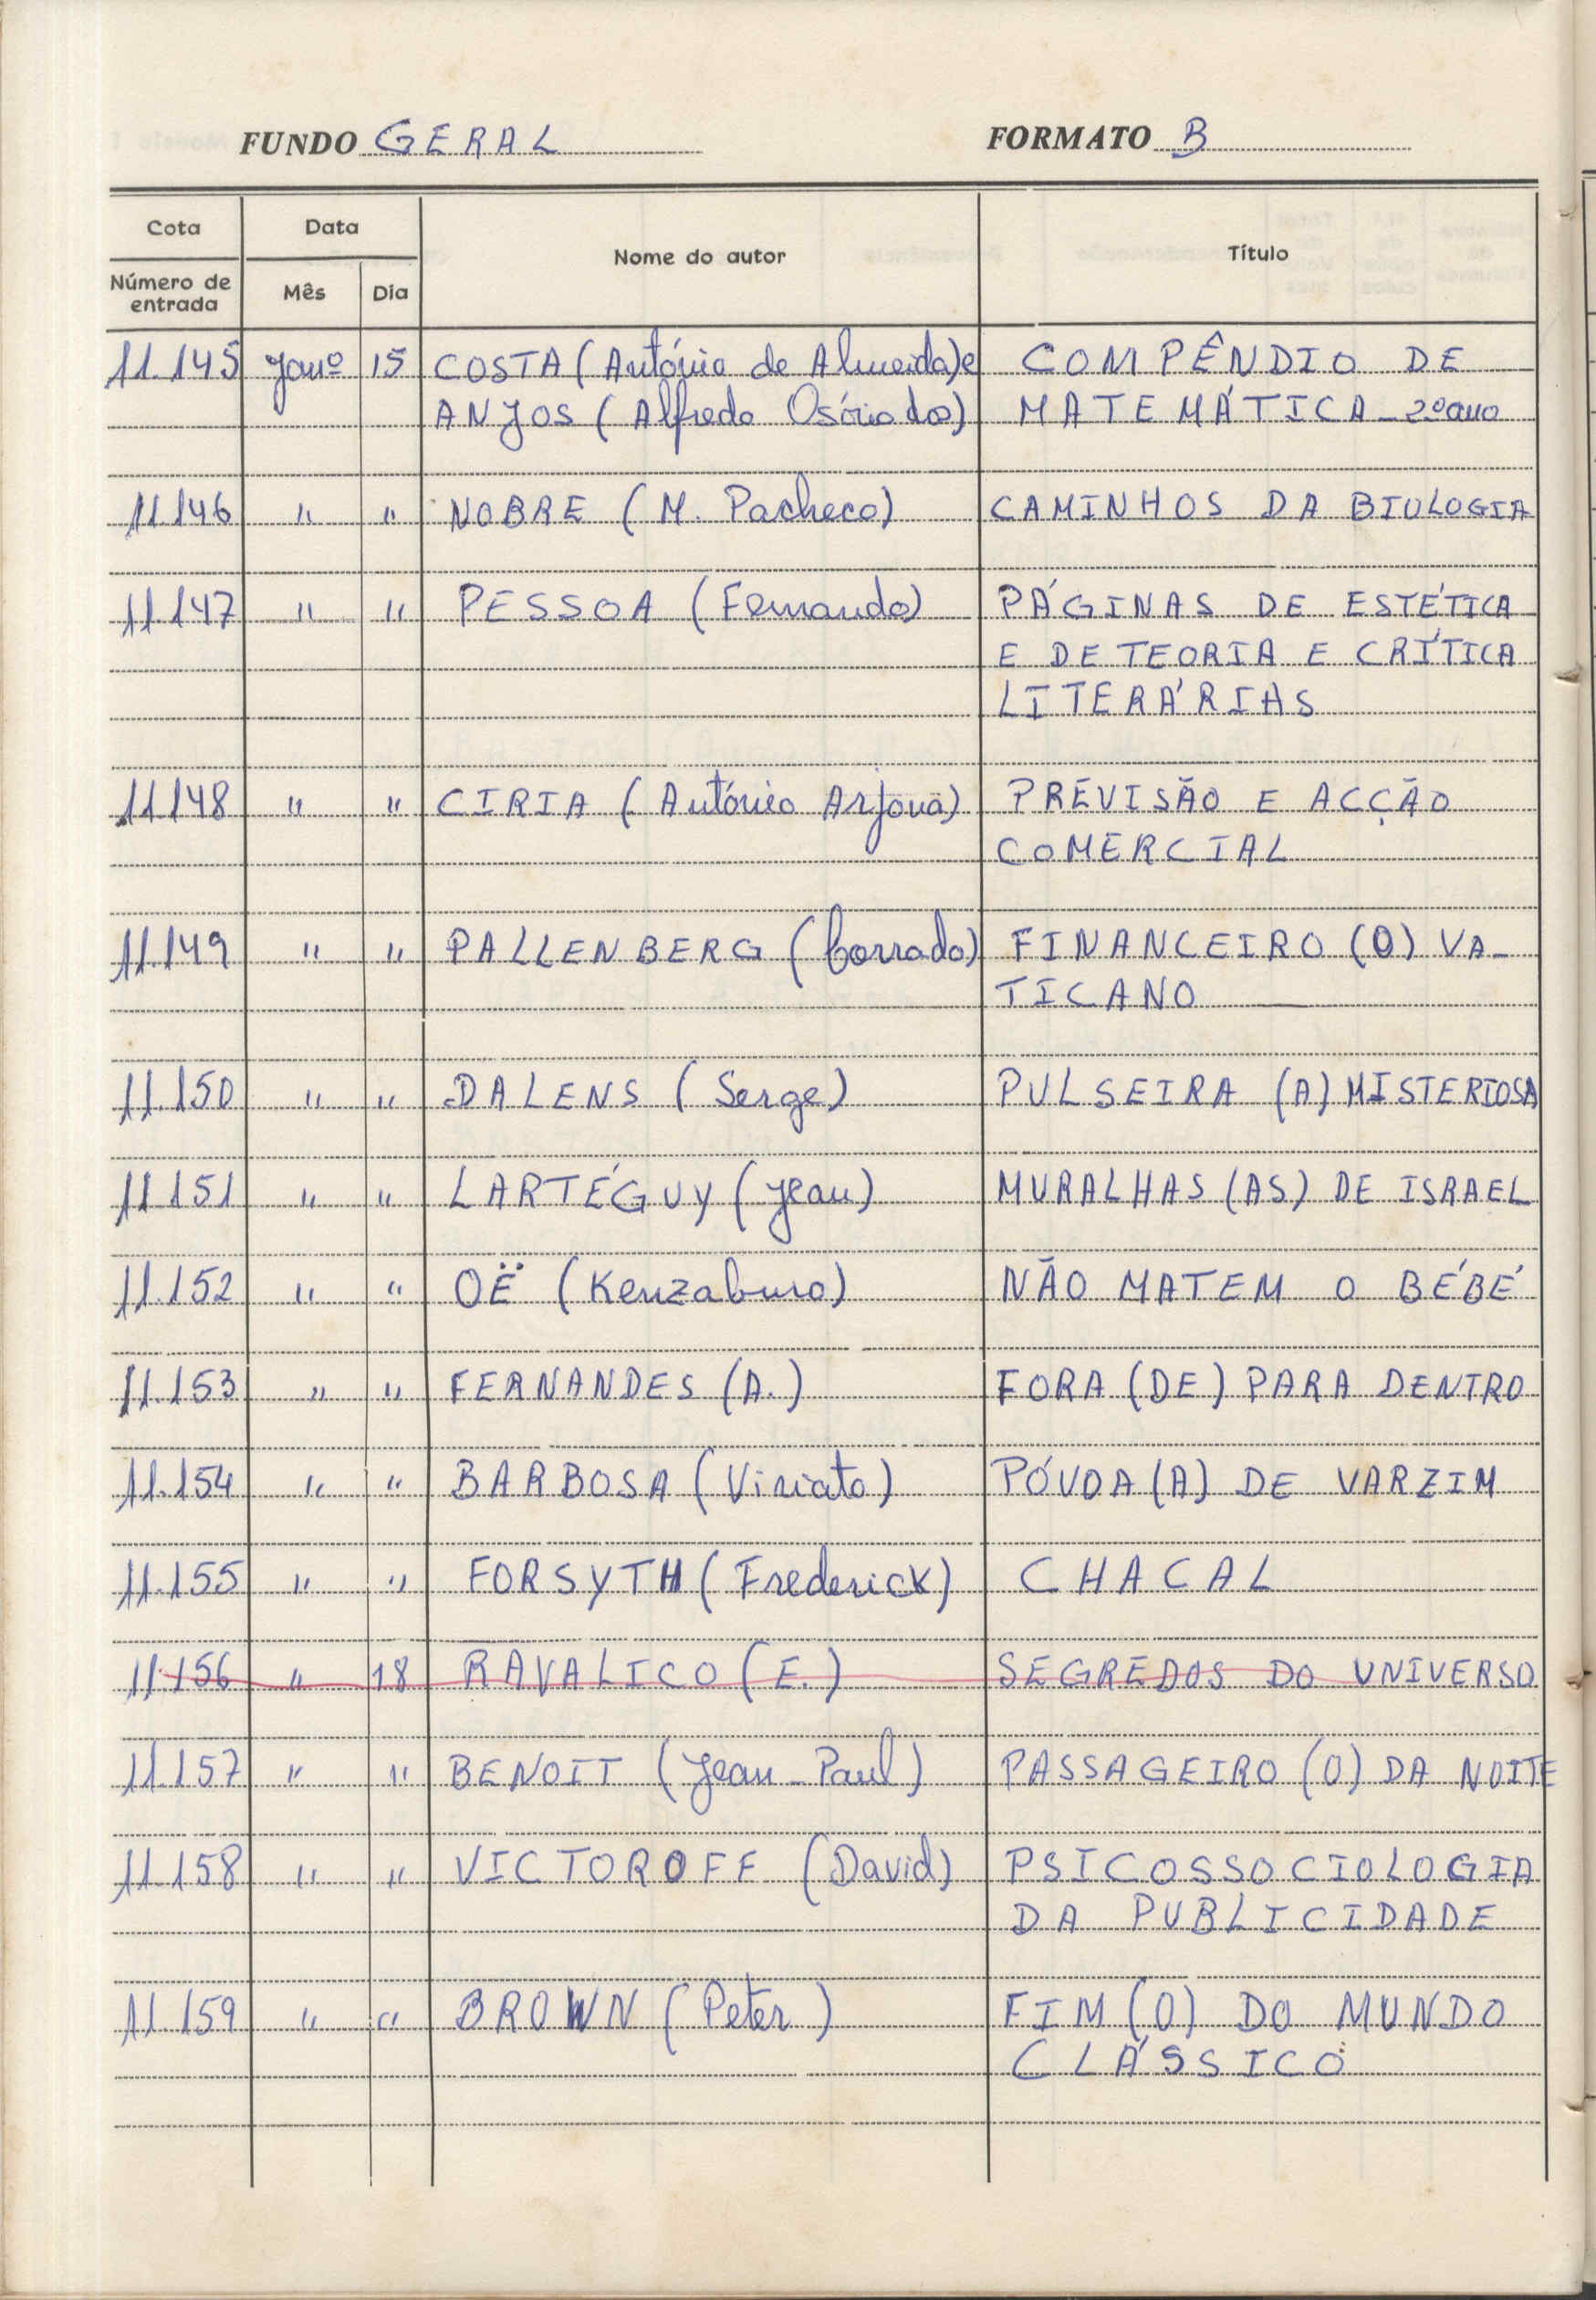 FUNDO GERAL FORMATO B
Cota Data Nome do autor Título
Número de entrada Mês Dia
11.145 Janº 15 COSTA (António de Almeida) e COMPÊNDIO DE
ANJOS (Alfredo Osório dos) MATEMÁTICA - 2º ano
11.146 " " NOBRE (M. Pacheco) CAMINHOS DA BIOLOGIA
11.147 " " PESSOA (Fernando) PÁGINAS DE ESTÉTICA
E DE TEORIA E CRÍTICA
LITERÁRIAS
11.148 " " CIRIA (António Arjona) PREVISÃO E ACÇÃO
COMERCIAL
11.149 " " PALLENBERG (Corrado) FINANCEIRO (O) VA-
TICANO
11.150 " " DALENS (Serge) PULSEIRA (A) MISTERIOSA
11.151 " " LARTÉGUY (Jean) MURALHAS (AS) DE ISRAEL
11.152 " " OË (Kenzaburo) NÃO MATEM O BÉBÉ
11.153 " " FERNANDES (A.) FORA (DE) PARA DENTRO
11.154 " " BARBOSA (Viriato) PÓVOA (A) DE VARZIM
11.155 " " FORSYTH (Frederick) CHACAL
11.156 " 18 RAVALICO (E.) SEGREDOS DO UNIVERSO
11.157 " " BENOIT (Jean-Paul) PASSAGEIRO (O) DA NOITE
11.158 " " VICTOROFF (David) PSICOSSOCIOLOGIA
DA PUBLICIDADE
11.159 " " BROWN (Peter) FIM (O) DO MUNDO
CLÁSSICO